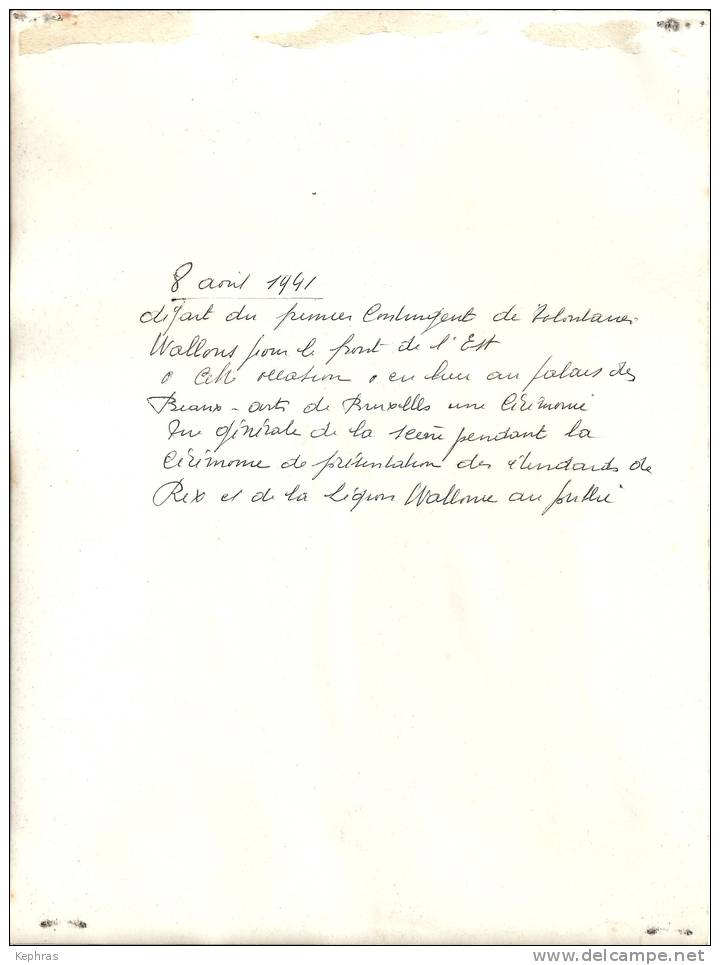 8 août 1941
départ du premier Contingent de Volontaires
Wallons pour le front de l'Est
a cette occasion a eu lieu au palais des
Beaux-arts de Bruxelles une Cérémonie
Vue générale de la scène pendant la
Cérémonie de présentation des étendards de
Rex et de la Légion Wallonne au public
Kephras
www.delcampe.net